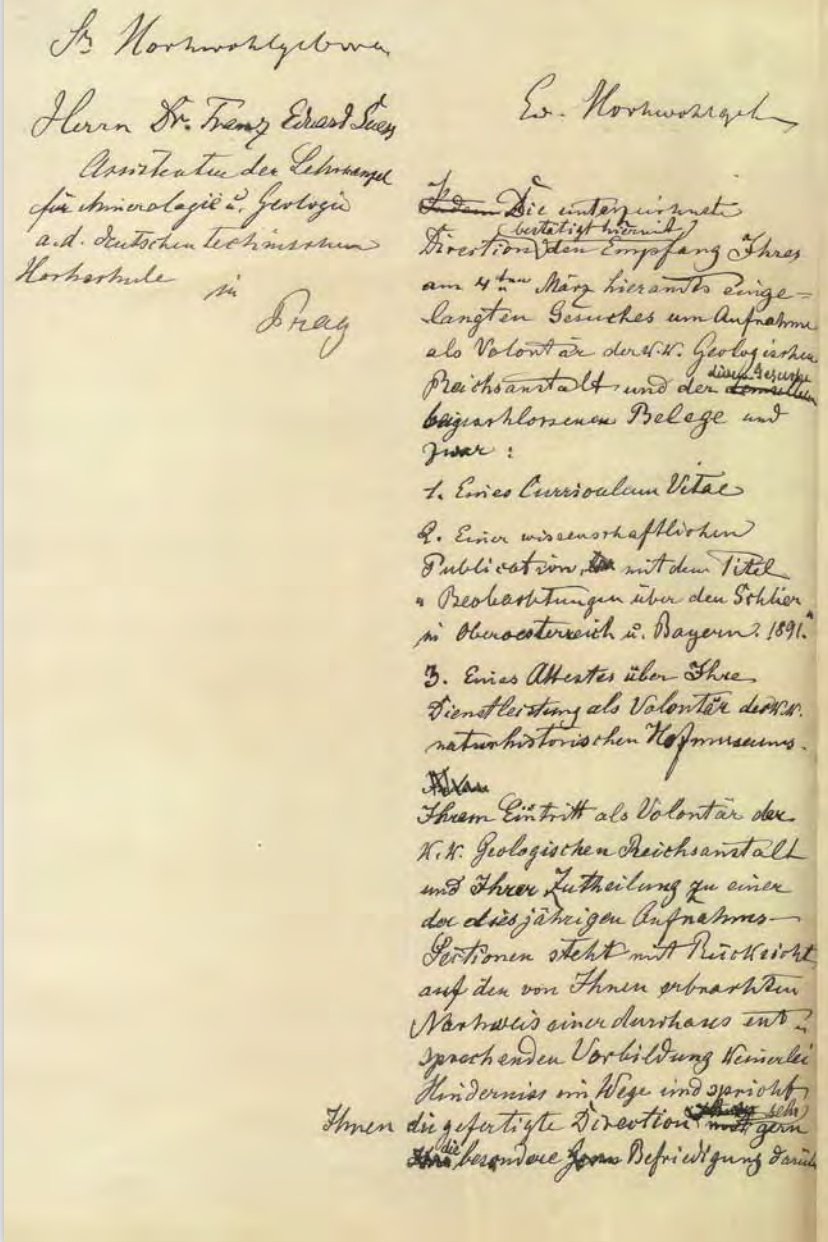 Sr Hochwohlgeboren
Herrn Dr. Franz Eduard Suess
Assistenten der Lehrkanzel
für Mineralogie u. Geologie
a. d. deutschen technischen
Hochschule
in
Prag
Ew. Hochwohlgeb
Indem Die unterzeichnete
bestätigt hiermit
Direction den Empfang Ihres
am 4ten März hieramts einge-
langten Gesuches um Aufnahme
als Volontär der k.k. Geologischen
diesem Gesuche
Reichsanstalt und der demselben
beigeschlossenen Belege und
zwar :
1. Eines Curriculum Vitae
2. Einer wissenschaftlichen
Publication, mit dem Titel
"Beobachtungen über den Schlier
in Oberoesterreich u. Bayern. 1891."
3. Eines Attestes über Ihre
Dienstleistung als Volontär des k.k.
naturhistorischen Hofmuseums.
Ihrem Eintritt als Volontär der
K.K. Geologischen Reichsanstalt
und Ihrer Zutheilung zu einer
der diesjährigen Aufnahms-
Sectionen steht mit Rücksicht
auf den von Ihnen erbrachten
Nachweis einer durchaus ent-
sprechenden Vorbildung keinerlei
Hinderniss im Wege und spricht
sehr
Ihnen die gefertigte Direction gern
die besondere Befriedigung darüber